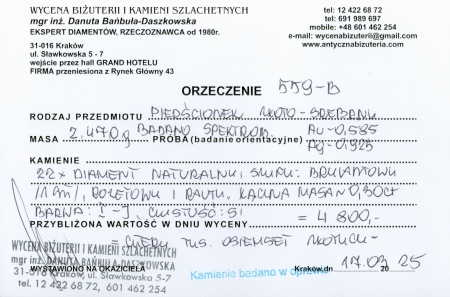 WYCENA BIŻUTERII I KAMIENI SZLACHETNYCH
mgr inż. Danuta Bańbuła-Daszkowska
EKSPERT DIAMENTÓW, RZECZOZNAWCA od 1980r.
31-016 Kraków
ul. Sławkowska 5 - 7
wejście przez hall GRAND HOTELU
FIRMA przeniesiona z Rynek Główny 43
tel: 12 422 68 72
tel: 691 989 697
mobile: +48 601 462 254
e-mail: wycenabizuterii@gmail.com
www.antycznabizuteria.com
ORZECZENIE 559-B
RODZAJ PRZEDMIOTU PIERŚCIONEK ZŁOTO-SREBRNY
MASA 2.470g BADANO SPEKTROM. PRÓBA (badanie orientacyjne) Au-0,585
Ag-0,925
KAMIENIE
22x DIAMENT NATURALNY, SZLIF: BRYLANTOWY
ROZETOWY I RAUTY. ŁĄCZNA MASA ~0,30ct
BARWA: I-J, CZYSTOŚĆ: SI
PRZYBLIŻONA WARTOŚĆ W DNIU WYCENY = 4 800,-
= CZTERY TYS. OSIEMSET ZŁOTYCH-
WYCENA BIŻUTERII I KAMIENI SZLACHETNYCH
mgr inż. DANUTA BAŃBUŁA-DASZKOWSKA
31-016 Kraków, ul. Sławkowska 5-7
tel. 12 422 68 72, 601 462 254
WYSTAWIONO NA OKAZICIELA
Kamienie badano w oprawie
Kraków, dn 17.09 20 25